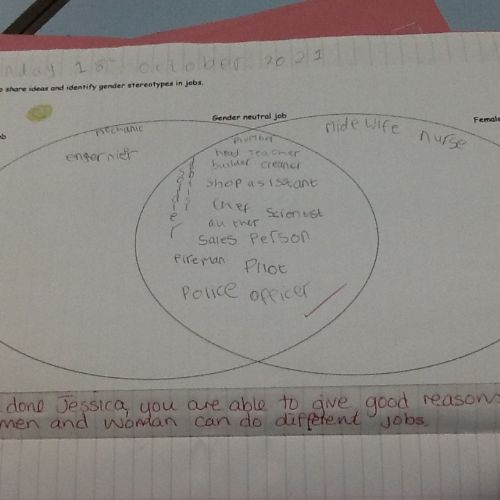 nday 18 october 2021
o share ideas and identify gender stereotypes in jobs.
Gender neutral job
Female
ob
mechanic
engernier
plumber
head teacher
builder cleaner
shop asistant
chef scienest
auther
sales person
fireman pilot
police officer
soldier
midewife nurse
done Jessica, you are able to give good reasons
men and woman can do different jobs.